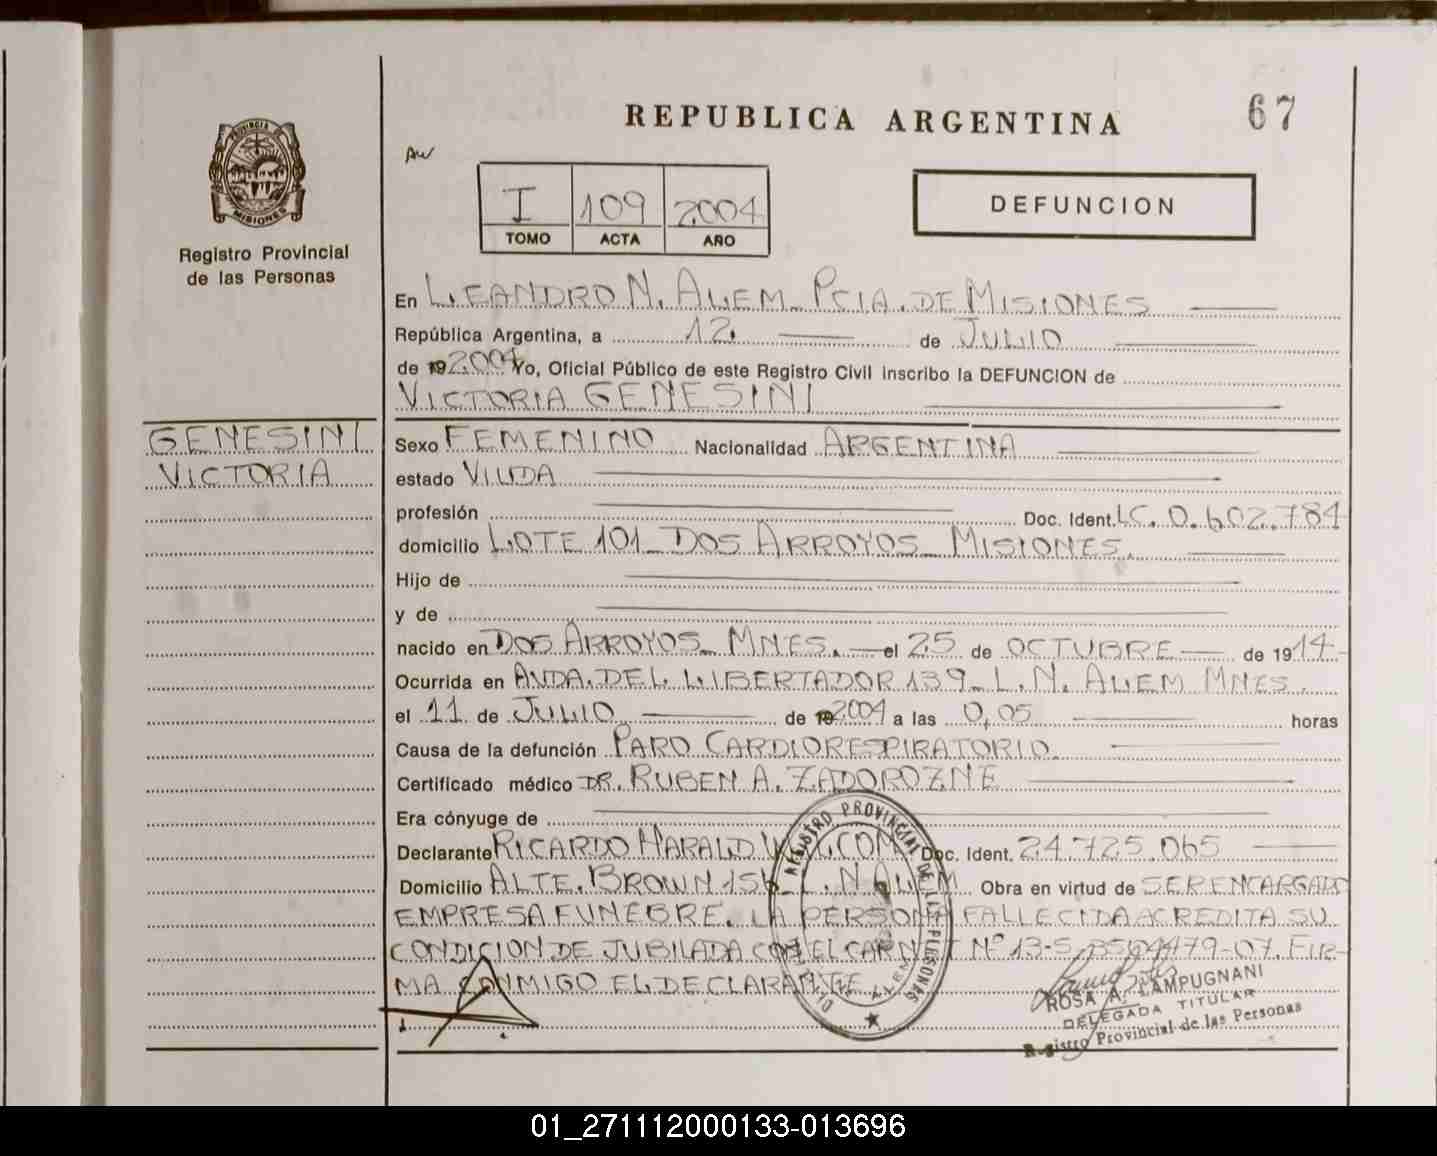 REPUBLICA ARGENTINA
67
PROVINCIA DE
MISIONES
Registro Provincial
de las Personas
I 109 2004
TOMO ACTA AÑO
DEFUNCION
En LEANDRO N. ALEM_ PCIA. DE MISIONES
República Argentina, a 12. de JULIO
de 19 2.004 Yo, Oficial Público de este Registro Civil inscribo la DEFUNCION de
VICTORIA GENESINI
GENESINI
VICTORIA
Sexo FEMENINO Nacionalidad ARGENTINA
estado VIUDA
profesión Doc. Ident. LC. 0.602.784
domicilio LOTE 101_ DOS ARROYOS_ MISIONES.
Hijo de
y de
nacido en DOS ARROYOS_ MNES. el 25 de OCTUBRE de 19 14
Ocurrida en AVDA. DEL LIBERTADOR 139_ L. N. ALEM MNES.
el 11 de JULIO de 19 2004 a las 0,05 horas
Causa de la defunción PARO CARDIORESPIRATORIO
Certificado médico DR. RUBEN A. ZADOROZNE
Era cónyuge de
Declarante RICARDO HARALD Doc. Ident. 24.725.065
Domicilio ALTE. BROWN L. N ALEM Obra en virtud de SER ENCARGADO
EMPRESA FUNEBRE. LA PERSONA FALLECIDA ACREDITA SU
CONDICION DE JUBILADA CON EL CARNET Nº FIR-
MA CONMIGO EL DECLARANTE
REGISTRO PROVINCIAL DE LAS PERSONAS
ROSA A. LAMPUGNANI
DELEGADA TITULAR
Registro Provincial de las Personas
01_271112000133-013696